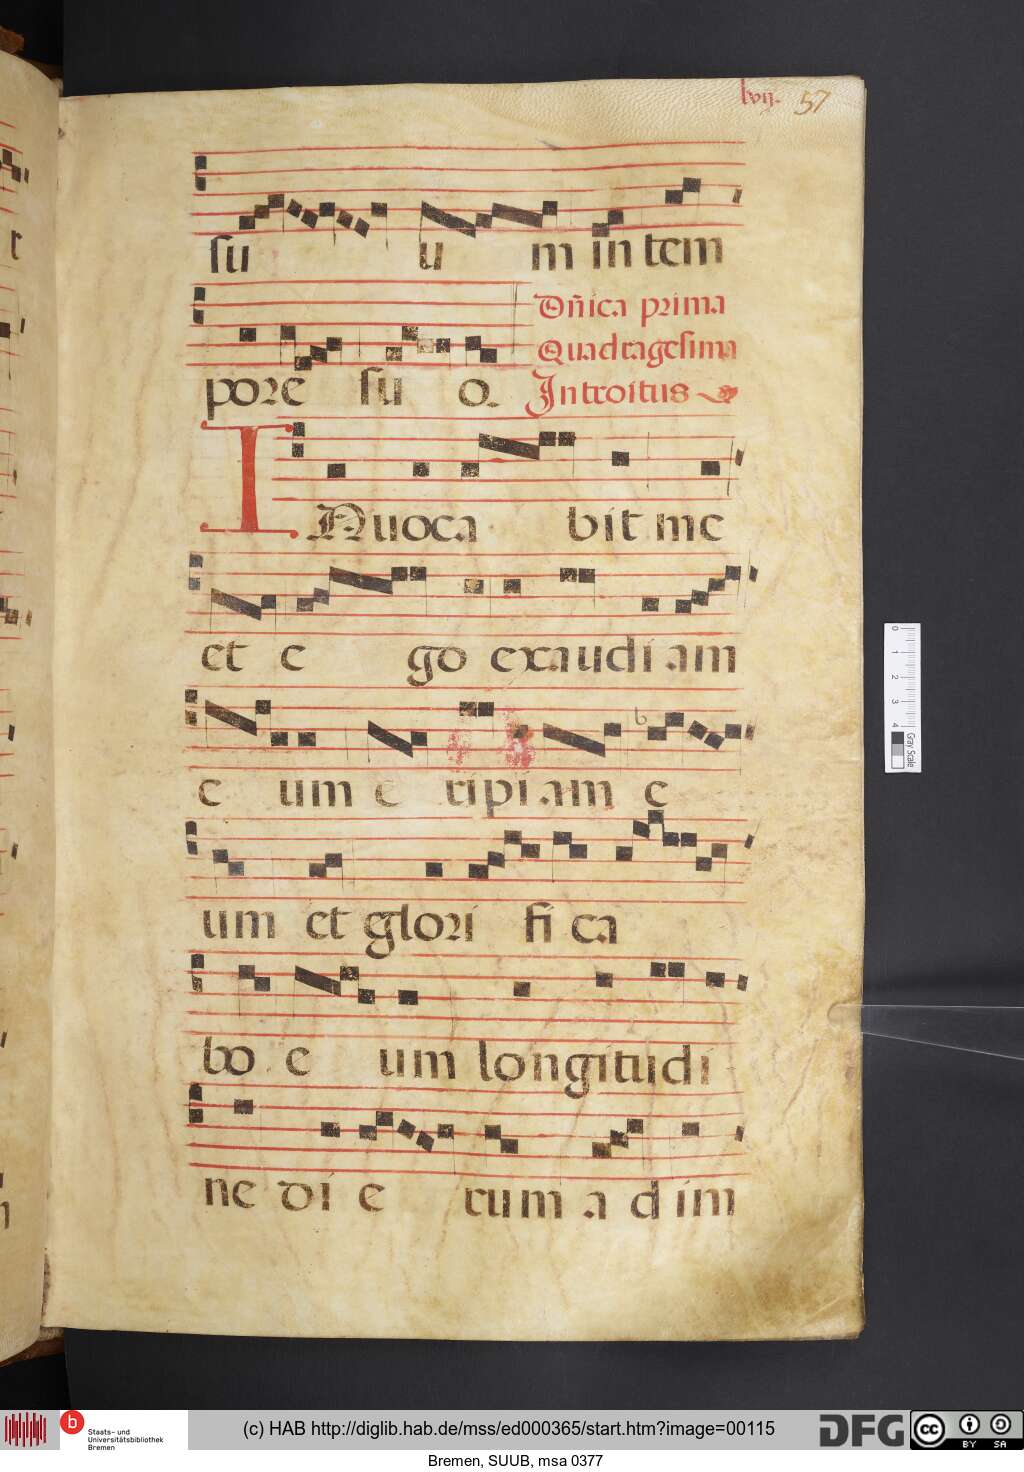 lvij. 57
su u m in tem
Dñica prima
Quadragesima
pore su o.
Introitus
INuoca bit me
et e go exaudi am
e um e ripiam e
um et glori fi ca
bo e um longitudi
ne di e rum a d im
0 1 2 3 4
Gray Scale
b Staats- und Universitätsbibliothek Bremen
(c) HAB http://diglib.hab.de/mss/ed000365/start.htm?image=00115
DFG
cc BY SA
Bremen, SUUB, msa 0377